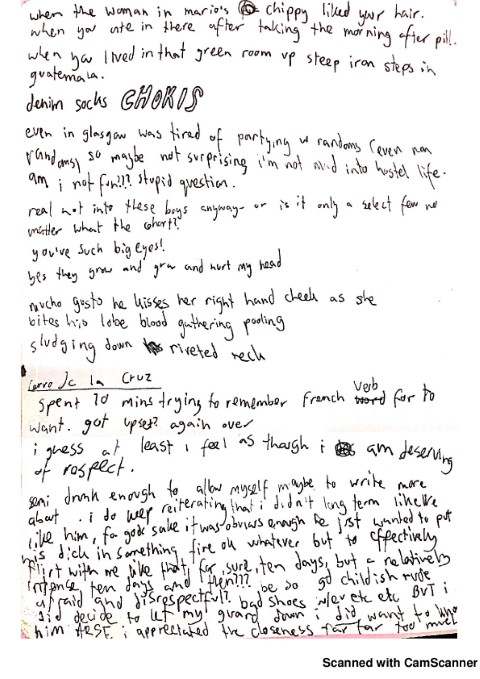 when the woman in mario's chippy liked your hair.
when you ate in there after taking the morning after pill.
when you lived in that green room up steep iron steps in
guatemala.
denim socks CHORIS
even in glasgow was tired of partying w randoms (even non
randoms) so maybe not surprising i'm not mad into hostel life.
am i not fun!?? stupid question.
real not into these boys anyway- or is it only a select few no
matter what the cohort?
you've such big eyes!
yes they grow and grow and hurt my head
mucho gusto he kisses her right hand cheek as she
bites his lobe blood gathering pooling
sludging down riveted neck
Cerro de la Cruz
spent 10 mins trying to remember French verb for to
want. got upset again over
i guess at least i feel as though i am deserving
of respect.
semi drunk enough to allow myself maybe to write more
about. i do keep reiterating that i didn't long term like like
like him, for gods sake it was obvious enough he just wanted to put
his dick in something fine ok whatever but to effectively
flirt with me like that, for, sure, ten days, but a relatively
intense ten days and then??? be so childish rude
afraid and disrespectful? bad shoes w/ev etc etc BUT i
did decide to let my guard down i did want to
him FIRST. i appreciated the closeness far far too much
Scanned with CamScanner